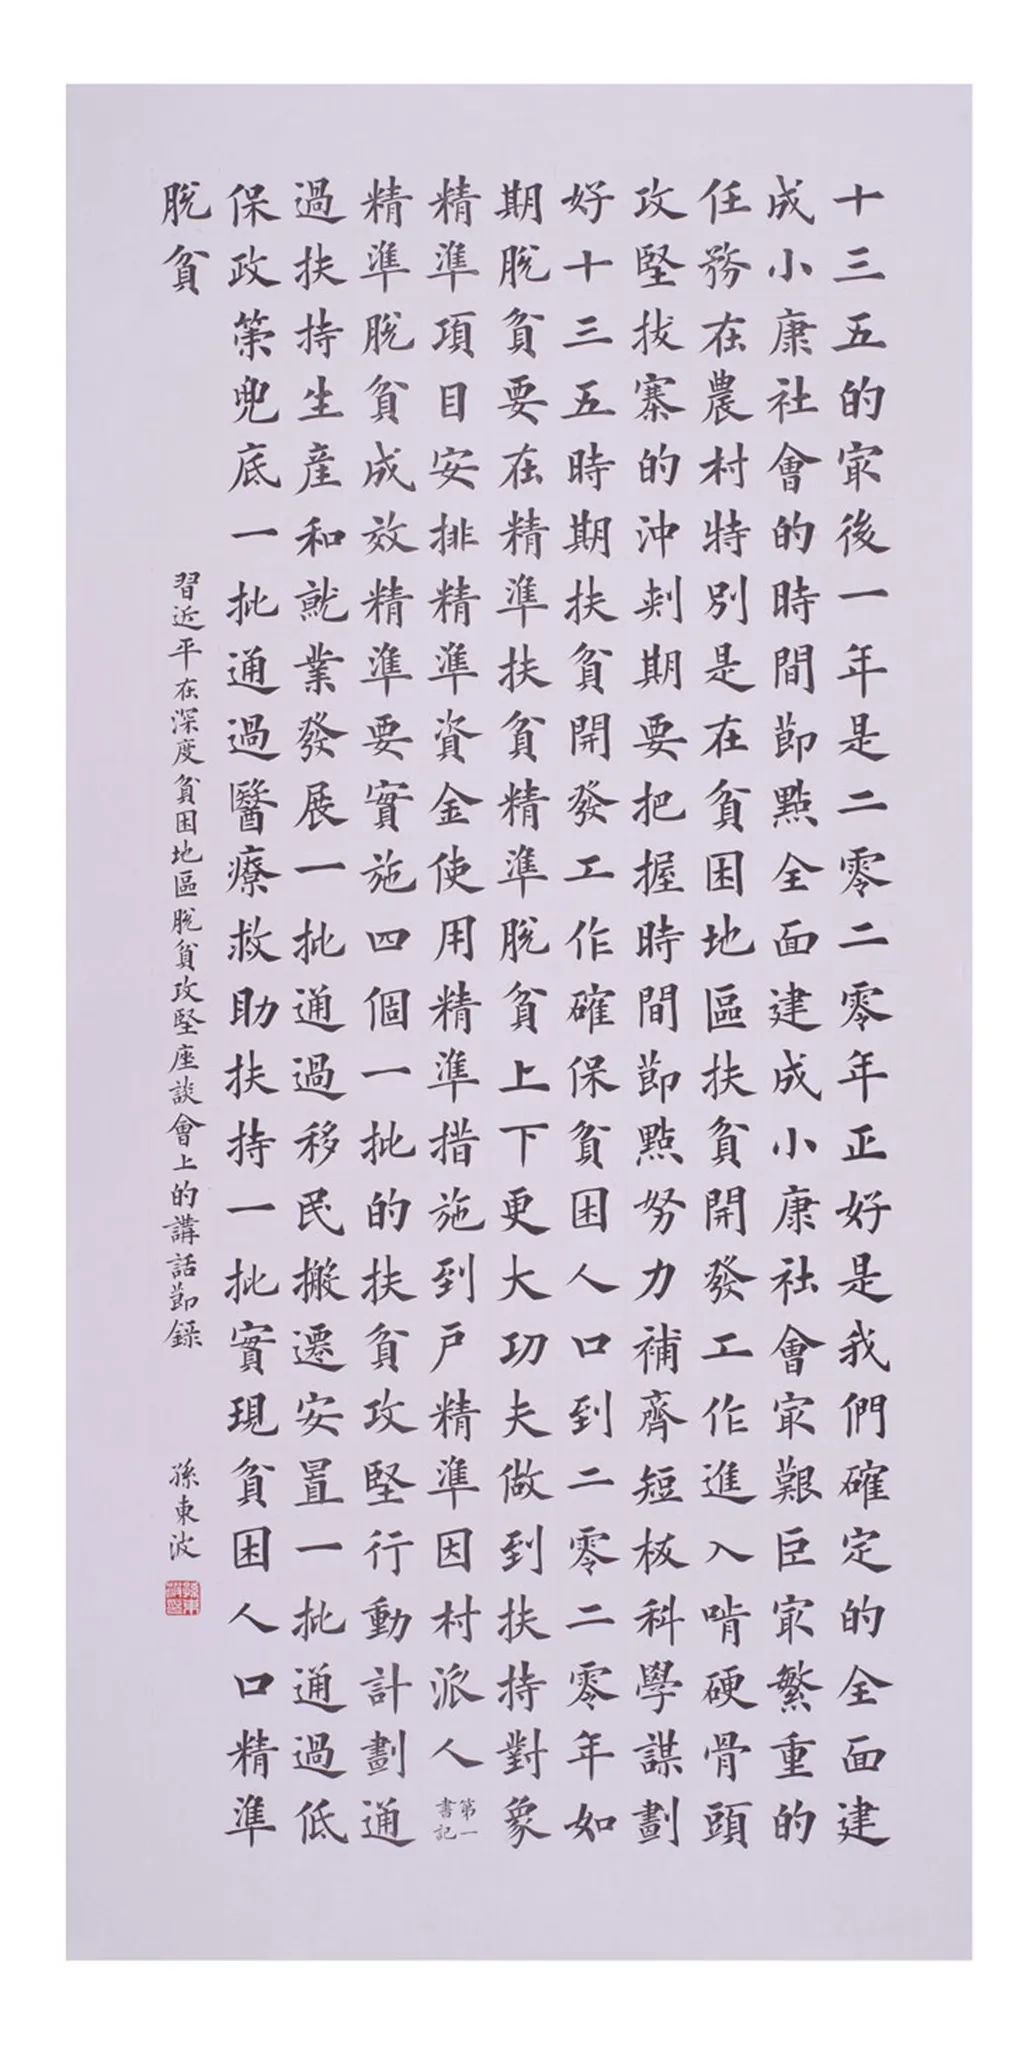 十三五的冣後一年是二零二零年正好是我們確定的全面建
成小康社會的時間節點全面建成小康社會冣艱巨冣繁重的
任務在農村特別是在貧困地區扶貧開發工作進入啃硬骨頭
攻堅拔寨的沖刺期要把握時間節點努力補齊短板科學謀劃
好十三五時期扶貧開發工作確保貧困人口到二零二零年如
期脫貧要在精準扶貧精準脫貧上下更大功夫做到扶持對象
精準項目安排精準資金使用精準措施到戶精準因村派人第一書記
精準脫貧成效精準要實施四個一批的扶貧攻堅行動計劃通
過扶持生產和就業發展一批通過移民搬遷安置一批通過低
保政策兜底一批通過醫療救助扶持一批實現貧困人口精準
脫貧
習近平在深度貧困地區脫貧攻堅座談會上的講話節錄
孫東波